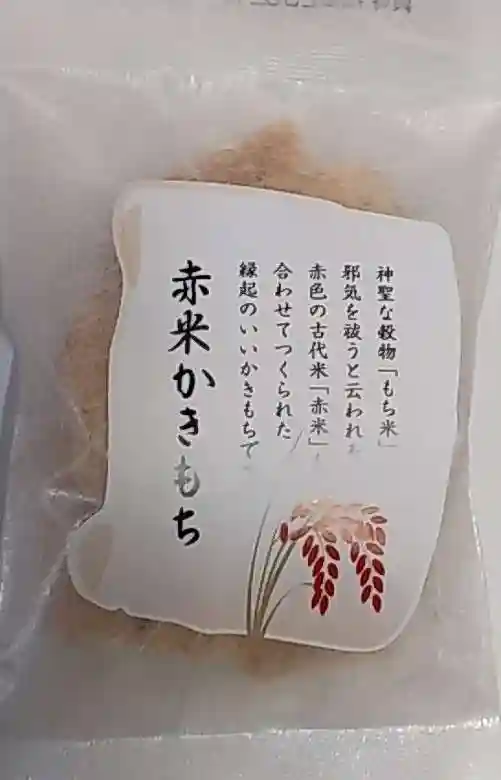 神聖な穀物「もち米」
邪気を祓うと云われ
赤色の古代米「赤米」
合わせてつくられた
縁起のいいかきもちで
赤米かきもち